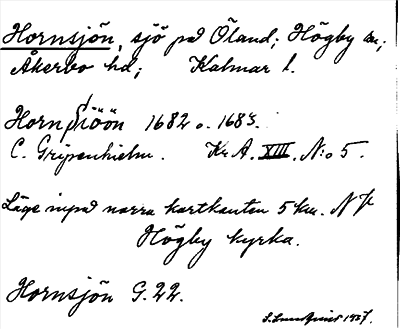 Hornsjön, sjö på Öland; Högby sn;
Åkerbo hd; Kalmar l.
Hornsiöön 1682 o. 1683.
C. Gripenhielm. Kr.A. XIII. N:o 5.
Läge inpå norra kartkanten 5 km. N
Högby kyrka.
Hornsjön G. 22.
1927.